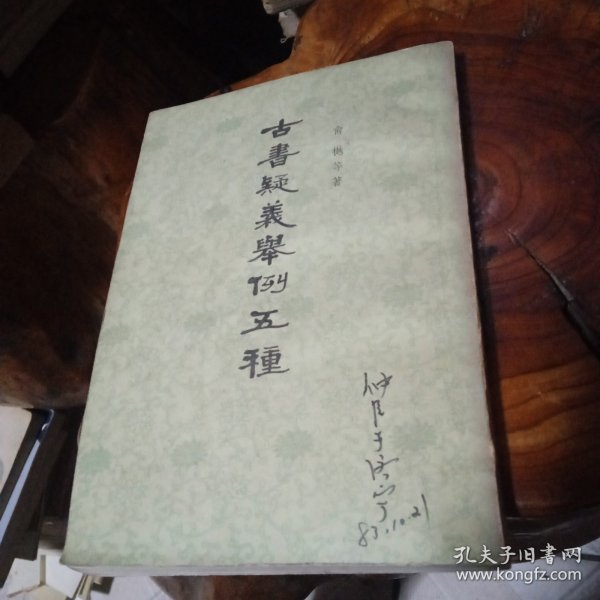 古書疑義舉例五種
俞樾等著
83.10.21
孔夫子旧书网
www.kongfz.com